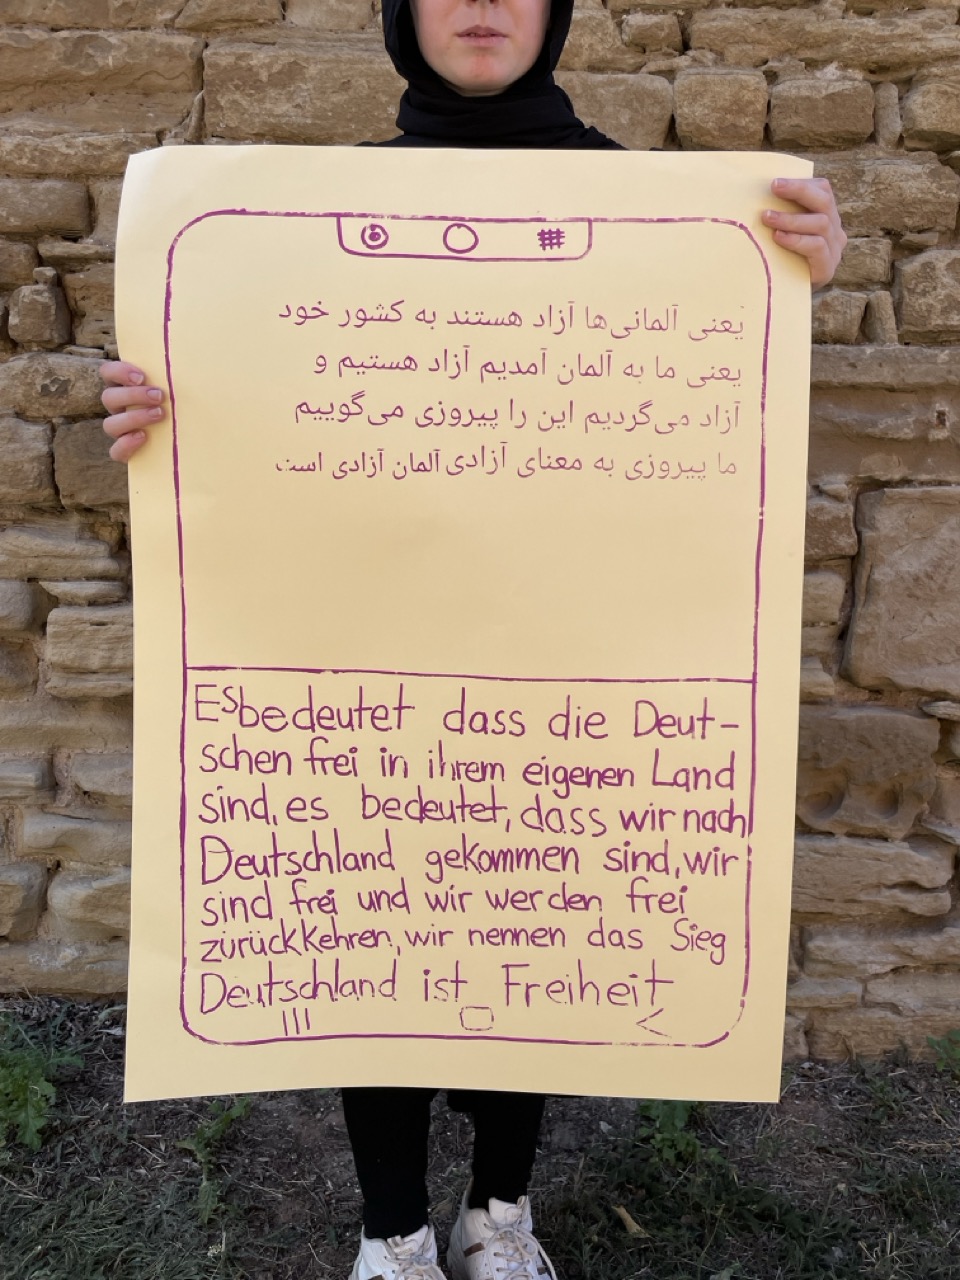 یعنی آلمانی‌ها آزاد هستند به کشور خود
یعنی ما به آلمان آمدیم آزاد هستیم و
آزاد می‌گردیم این را پیروزی می‌گوییم
ما پیروزی به معنای آزادی آلمان آزادی است
Es bedeutet dass die Deut-
schen frei in ihrem eigenen Land
sind, es bedeutet, dass wir nach
Deutschland gekommen sind, wir
sind frei und wir werden frei
zürückkehren, wir nennen das Sieg
Deutschland ist Freiheit